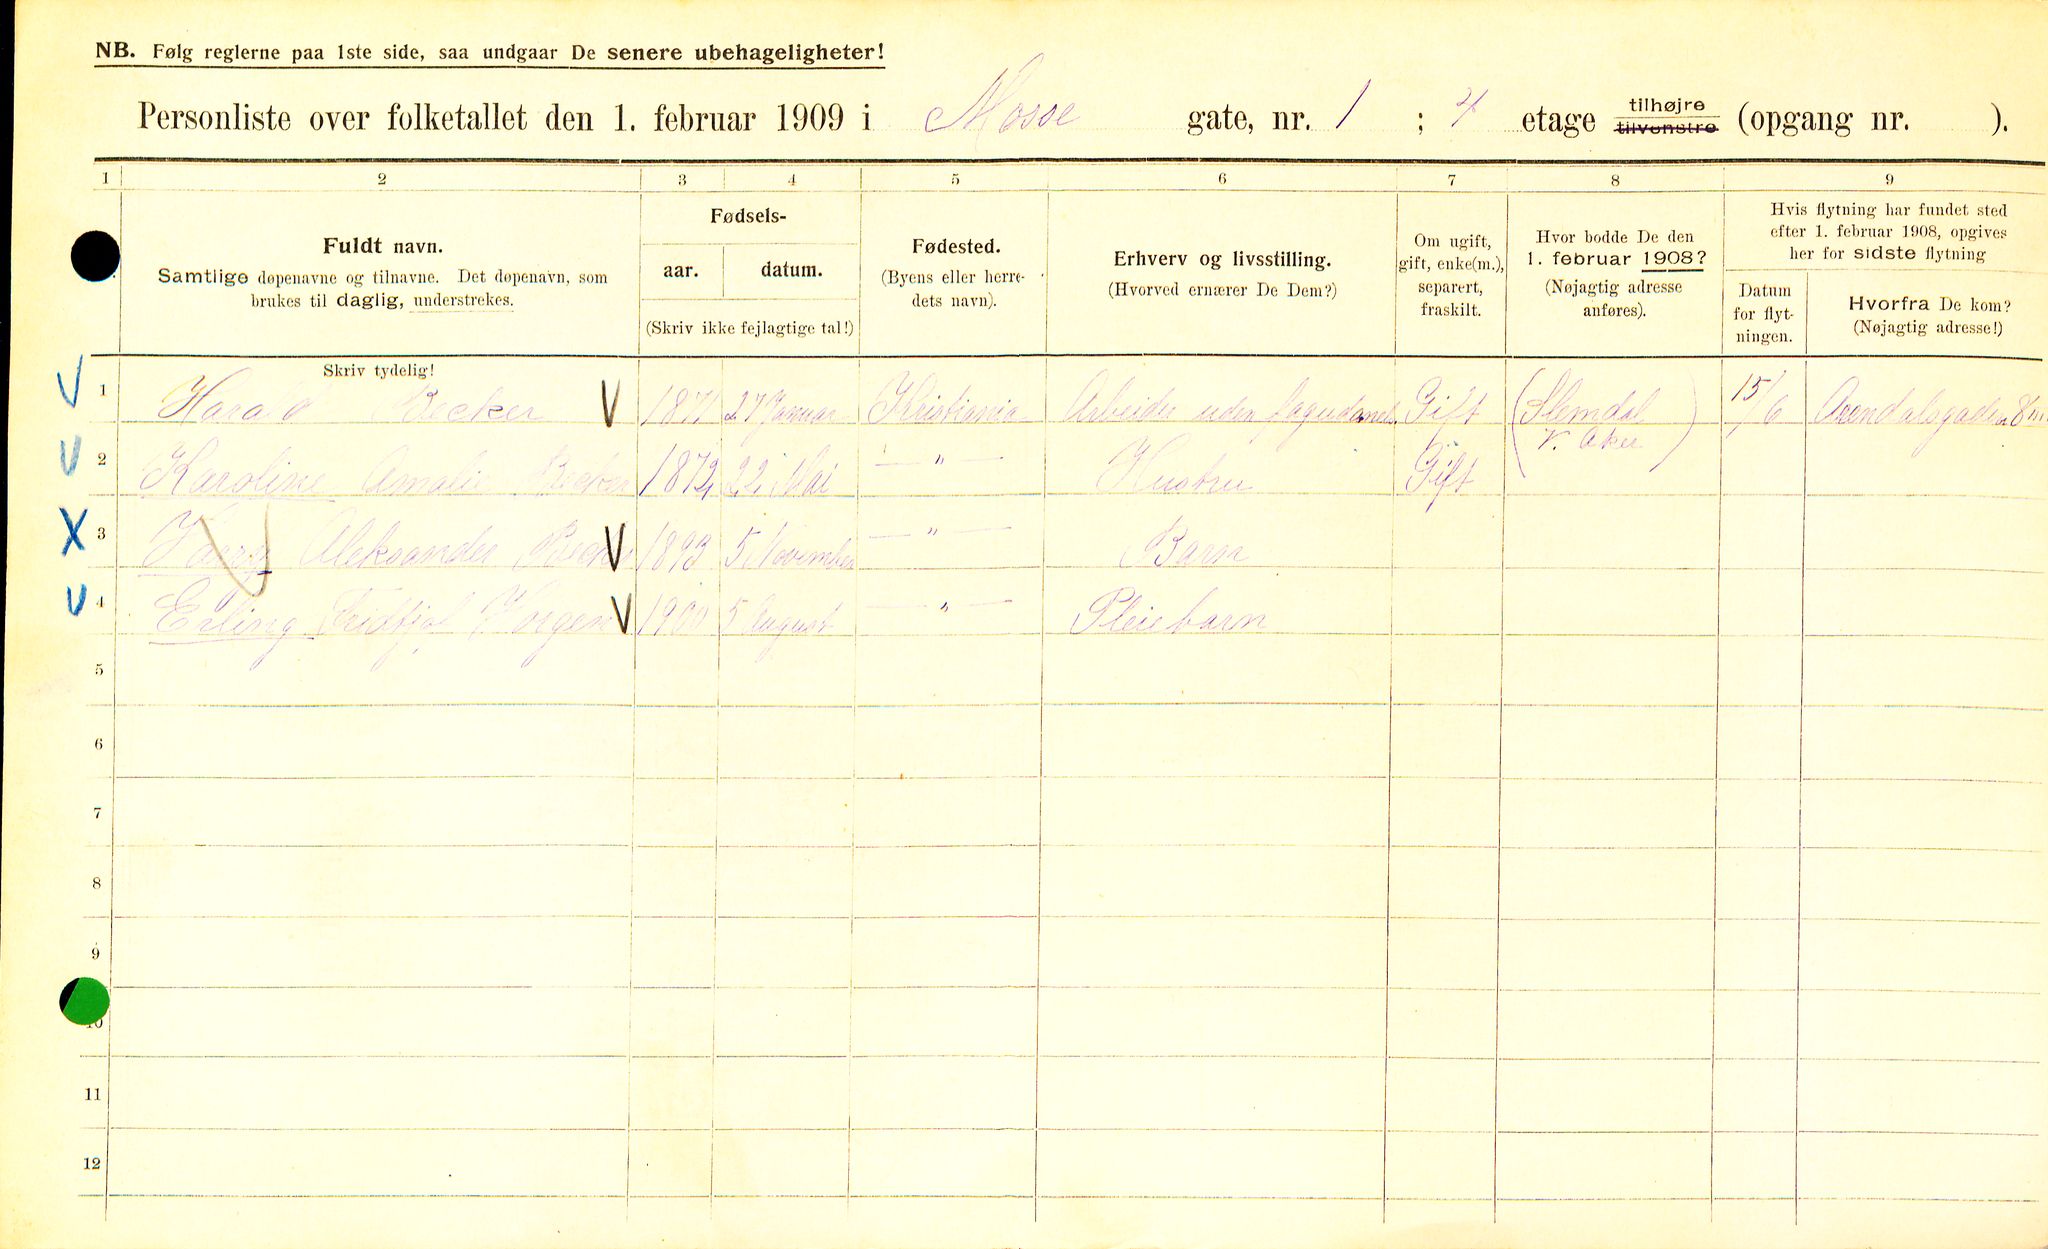 NB. Følg reglerne paa 1ste side, saa undgaar De senere ubehageligheter!
Personliste over folketallet den 1. februar 1909 i Mosse gate, nr. 1 ; 4 etage tilhøjre tilvenstre (opgang nr. ).
1 2 3 4 5 6 7 8 9
Fuldt navn.
Samtlige døpenavne og tilnavne. Det døpenavn, som
brukes til daglig, understrekes.
Fødsels-
aar. datum.
(Skriv ikke fejlagtige tal!)
Fødested.
(Byens eller herre-
dets navn).
Erhverv og livsstilling.
(Hvorved ernærer De Dem?)
Om ugift,
gift, enke(m.),
separert,
fraskilt.
Hvor bodde De den
1. februar 1908?
(Nøjagtig adresse
anføres).
Hvis flytning har fundet sted
efter 1. februar 1908, opgives
her for sidste flytning
Datum
for flyt-
ningen.
Hvorfra De kom?
(Nøjagtig adresse!)
Skriv tydelig!
1 Harald Becker 1871 27 Januar Kristiania Arbeider uden fagudand. Gift (Slemdal V. Aker) 15/6 Arendalsgaden 8
2 Karoline Amalie Becker 1872 22 Mai — " — Hustru Gift
3 Aleksander Becker 1893 5 November — " — Barn
4 Erling Fridtjof 1900 5 August — " — Pleiebarn
5
6
7
8
9
10
11
12